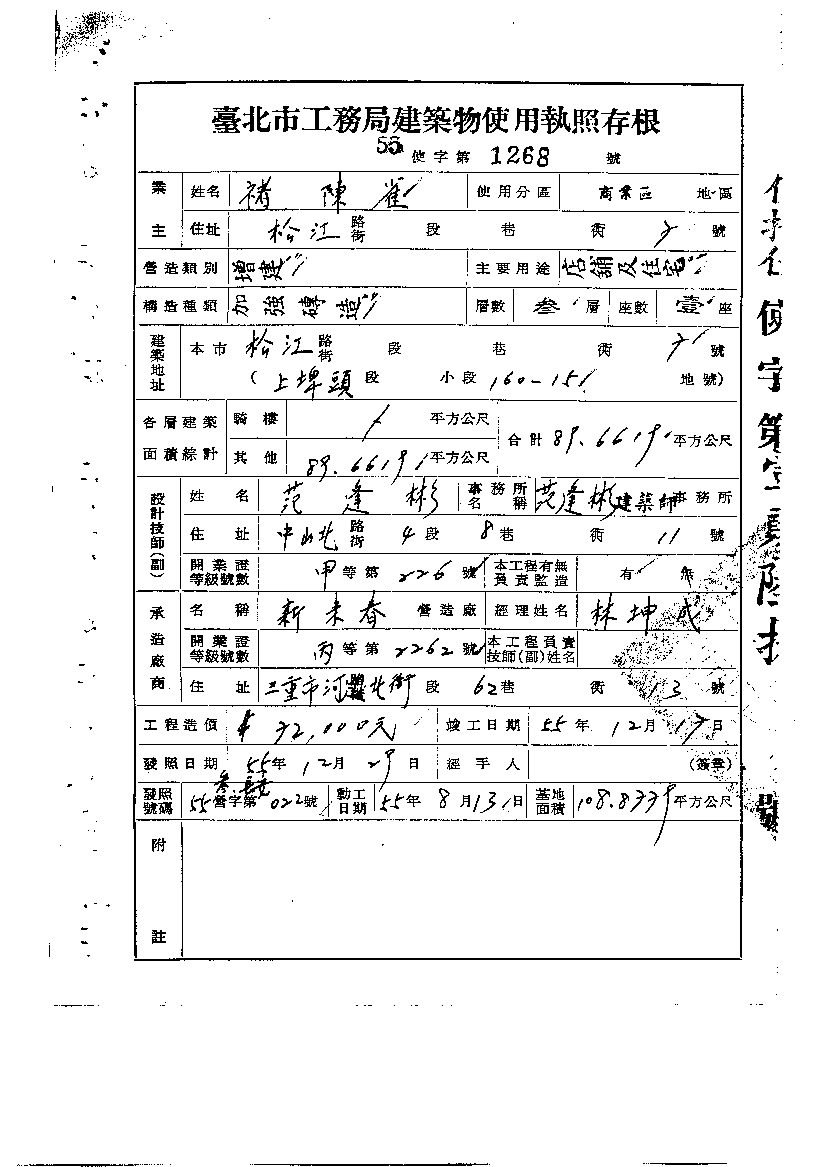 臺北市工務局建築物使用執照存根
55 使字第 1268 號
業主 姓名 褚陳雀 使用分區 商業區 地區
住址 松江路街 段 巷 衖 號
營造類別 增建 主要用途 店鋪及住宅
構造種類 加強磚造 層數 叁層 座數 壹座
建築地址 本市 松江路街 段 巷 衖 號
(上埤頭段 小段 160-151 地號)
各層建築面積綜計 騎樓 平方公尺 合計 89.6619 平方公尺
其他 89.6619 平方公尺
設計技師(副) 姓名 范逢彬 事務所名稱 范逢彬建築師事務所
住址 中山北路街 4段 8巷 衖 11號
開業證等級號數 甲等第226號 本工程有無負責監造 有 無
承造廠商 名稱 新來春營造廠 經理姓名 林坤成
開業證等級號數 丙等第2262號 本工程負責技師(副)姓名
住址 三重市河邊北街 段 62巷 衖 13號
工程造價 72,000元 竣工日期 55年12月17日
發照日期 55年12月29日 經手人 (簽章)
發照號碼 55營字第022號 動工日期 55年8月13日 基地面積 108.8779 平方公尺
附註
使字第
號